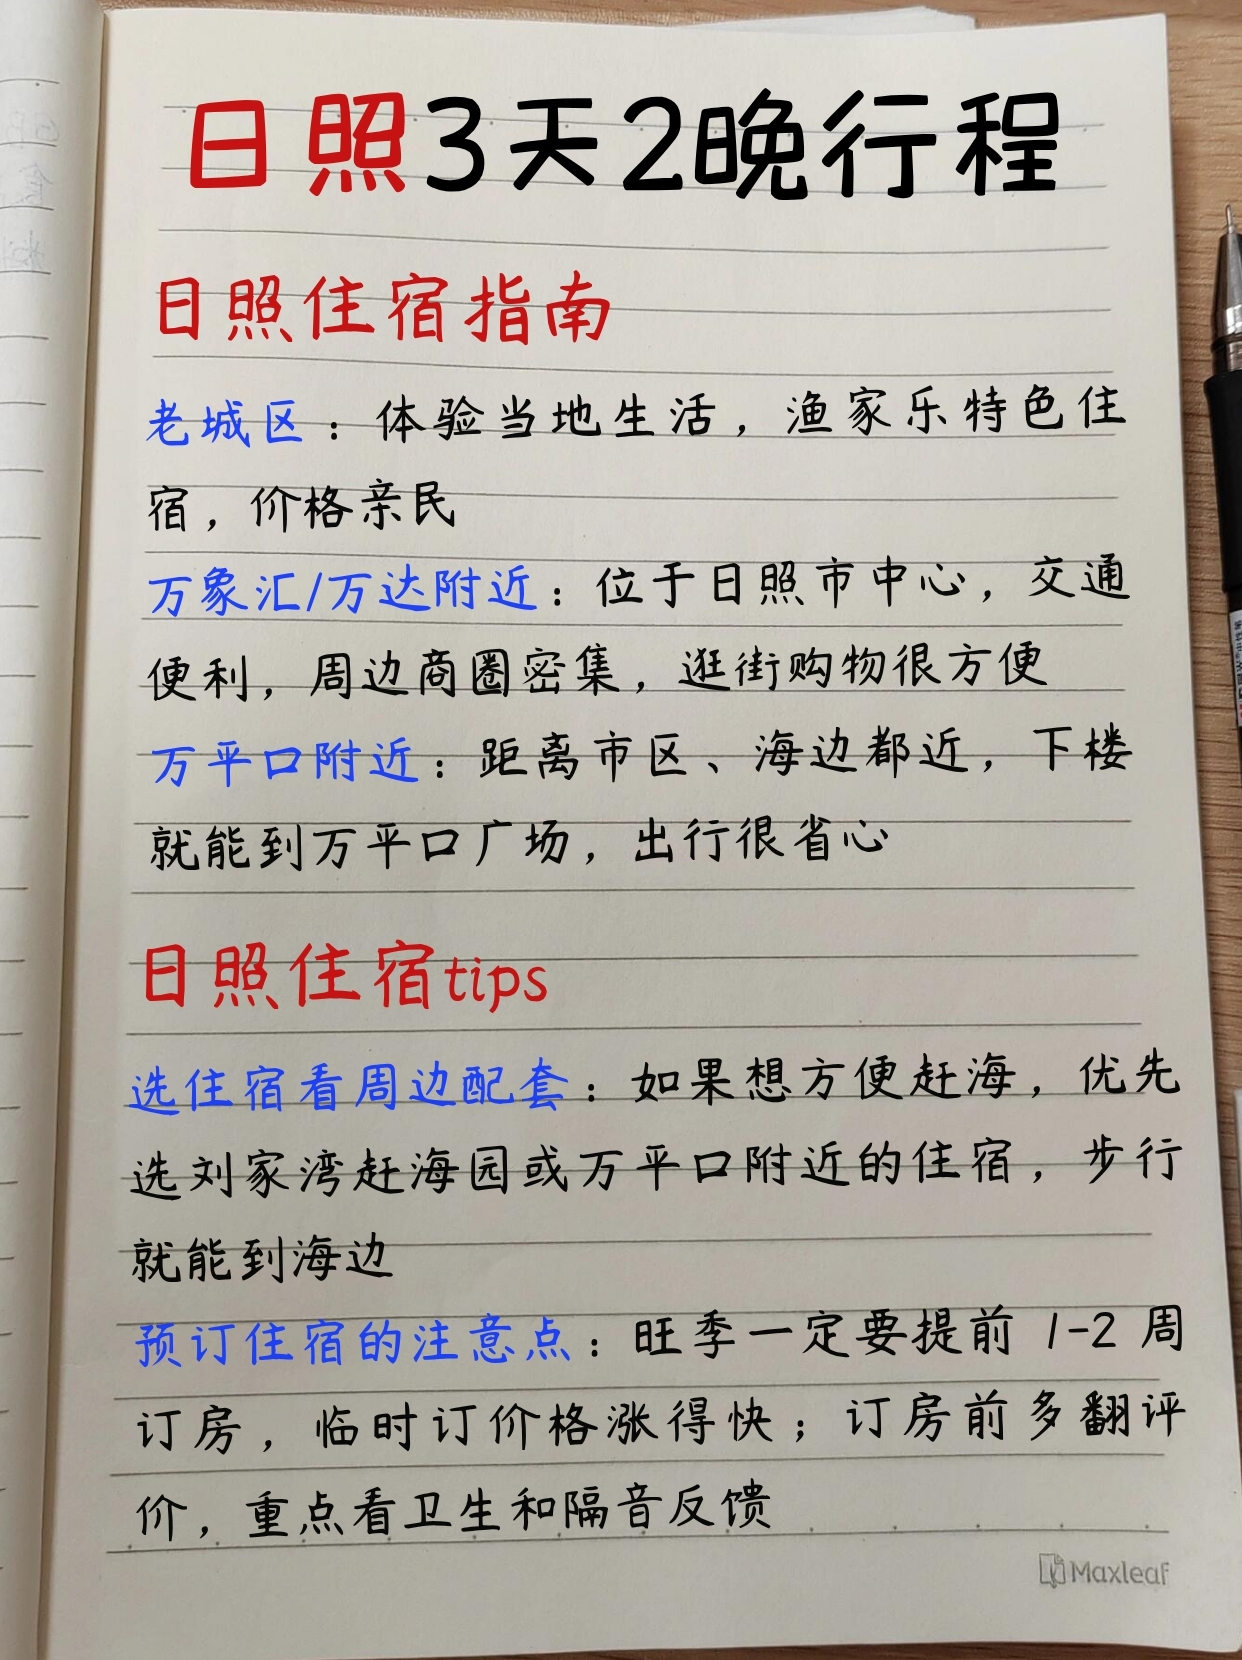 日照3天2晚行程
日照住宿指南
老城区：体验当地生活，渔家乐特色住
宿，价格亲民
万象汇/万达附近：位于日照市中心，交通
便利，周边商圈密集，逛街购物很方便
万平口附近：距离市区、海边都近，下楼
就能到万平口广场，出行很省心
日照住宿tips
选住宿看周边配套：如果想方便赶海，优先
选刘家湾赶海园或万平口附近的住宿，步行
就能到海边
预订住宿的注意点：旺季一定要提前 1-2 周
订房，临时订价格涨得快；订房前多翻评
价，重点看卫生和隔音反馈
Maxleaf